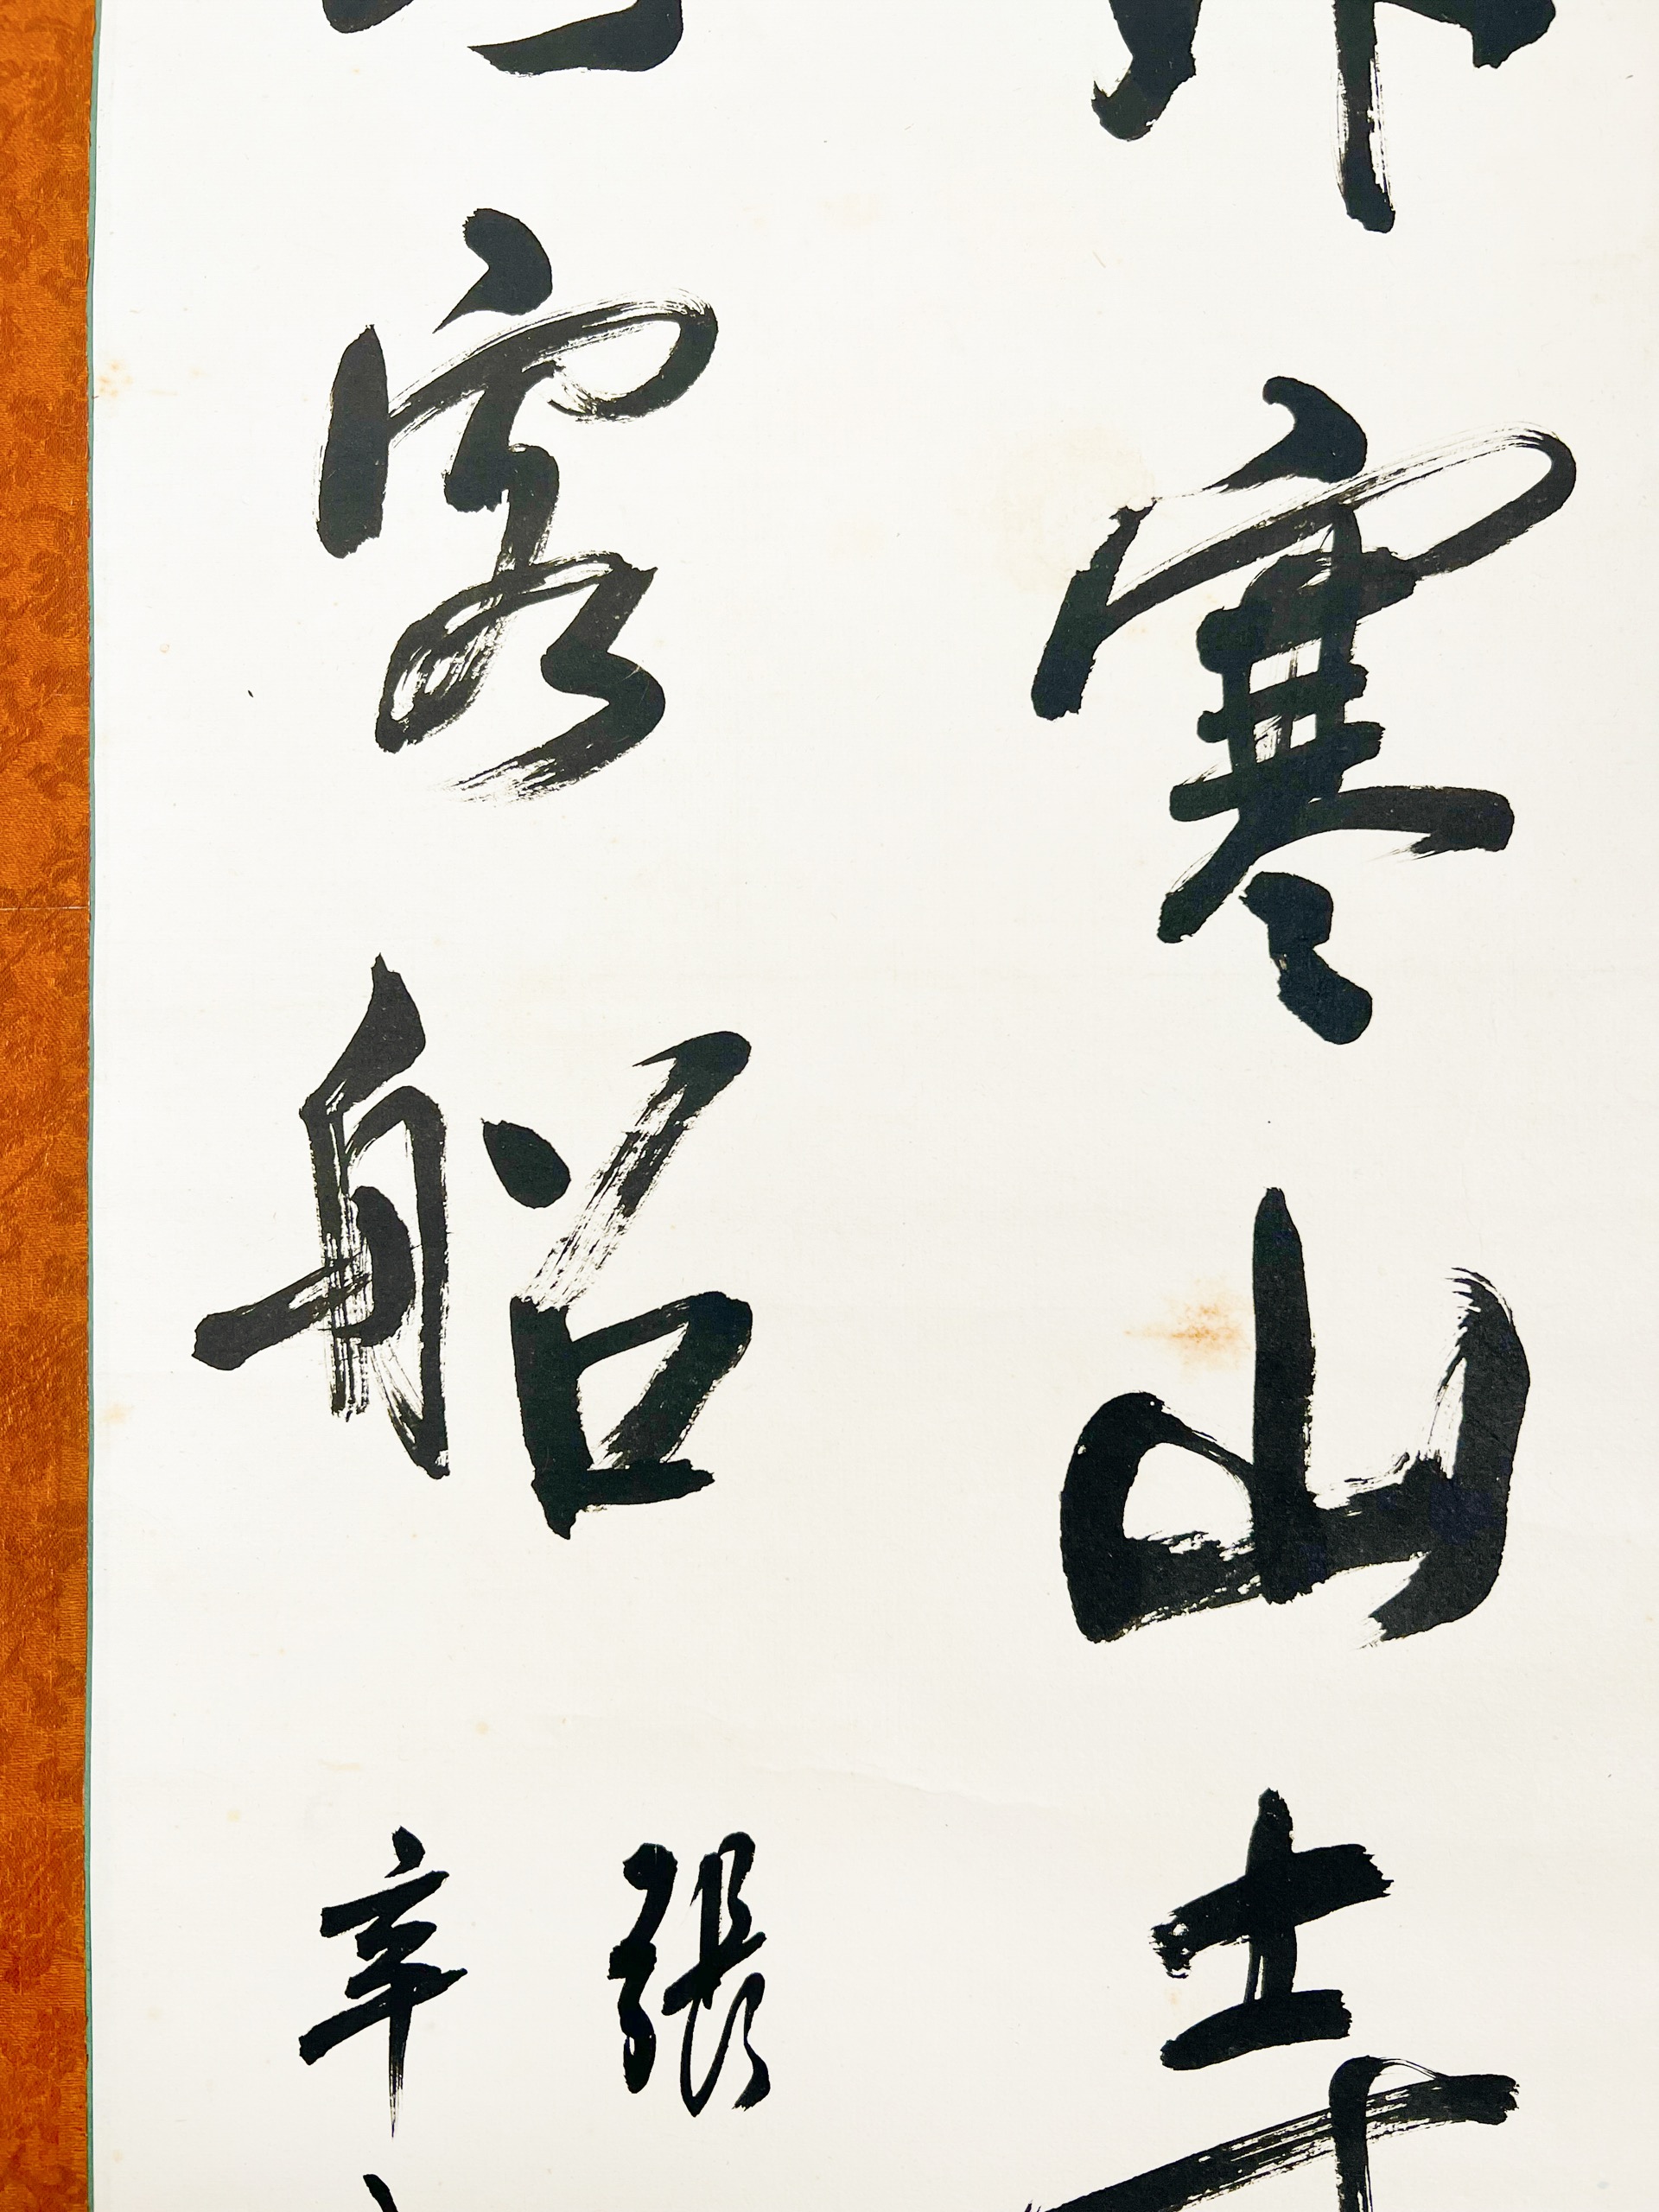 外寒山寺
客船
張
辛